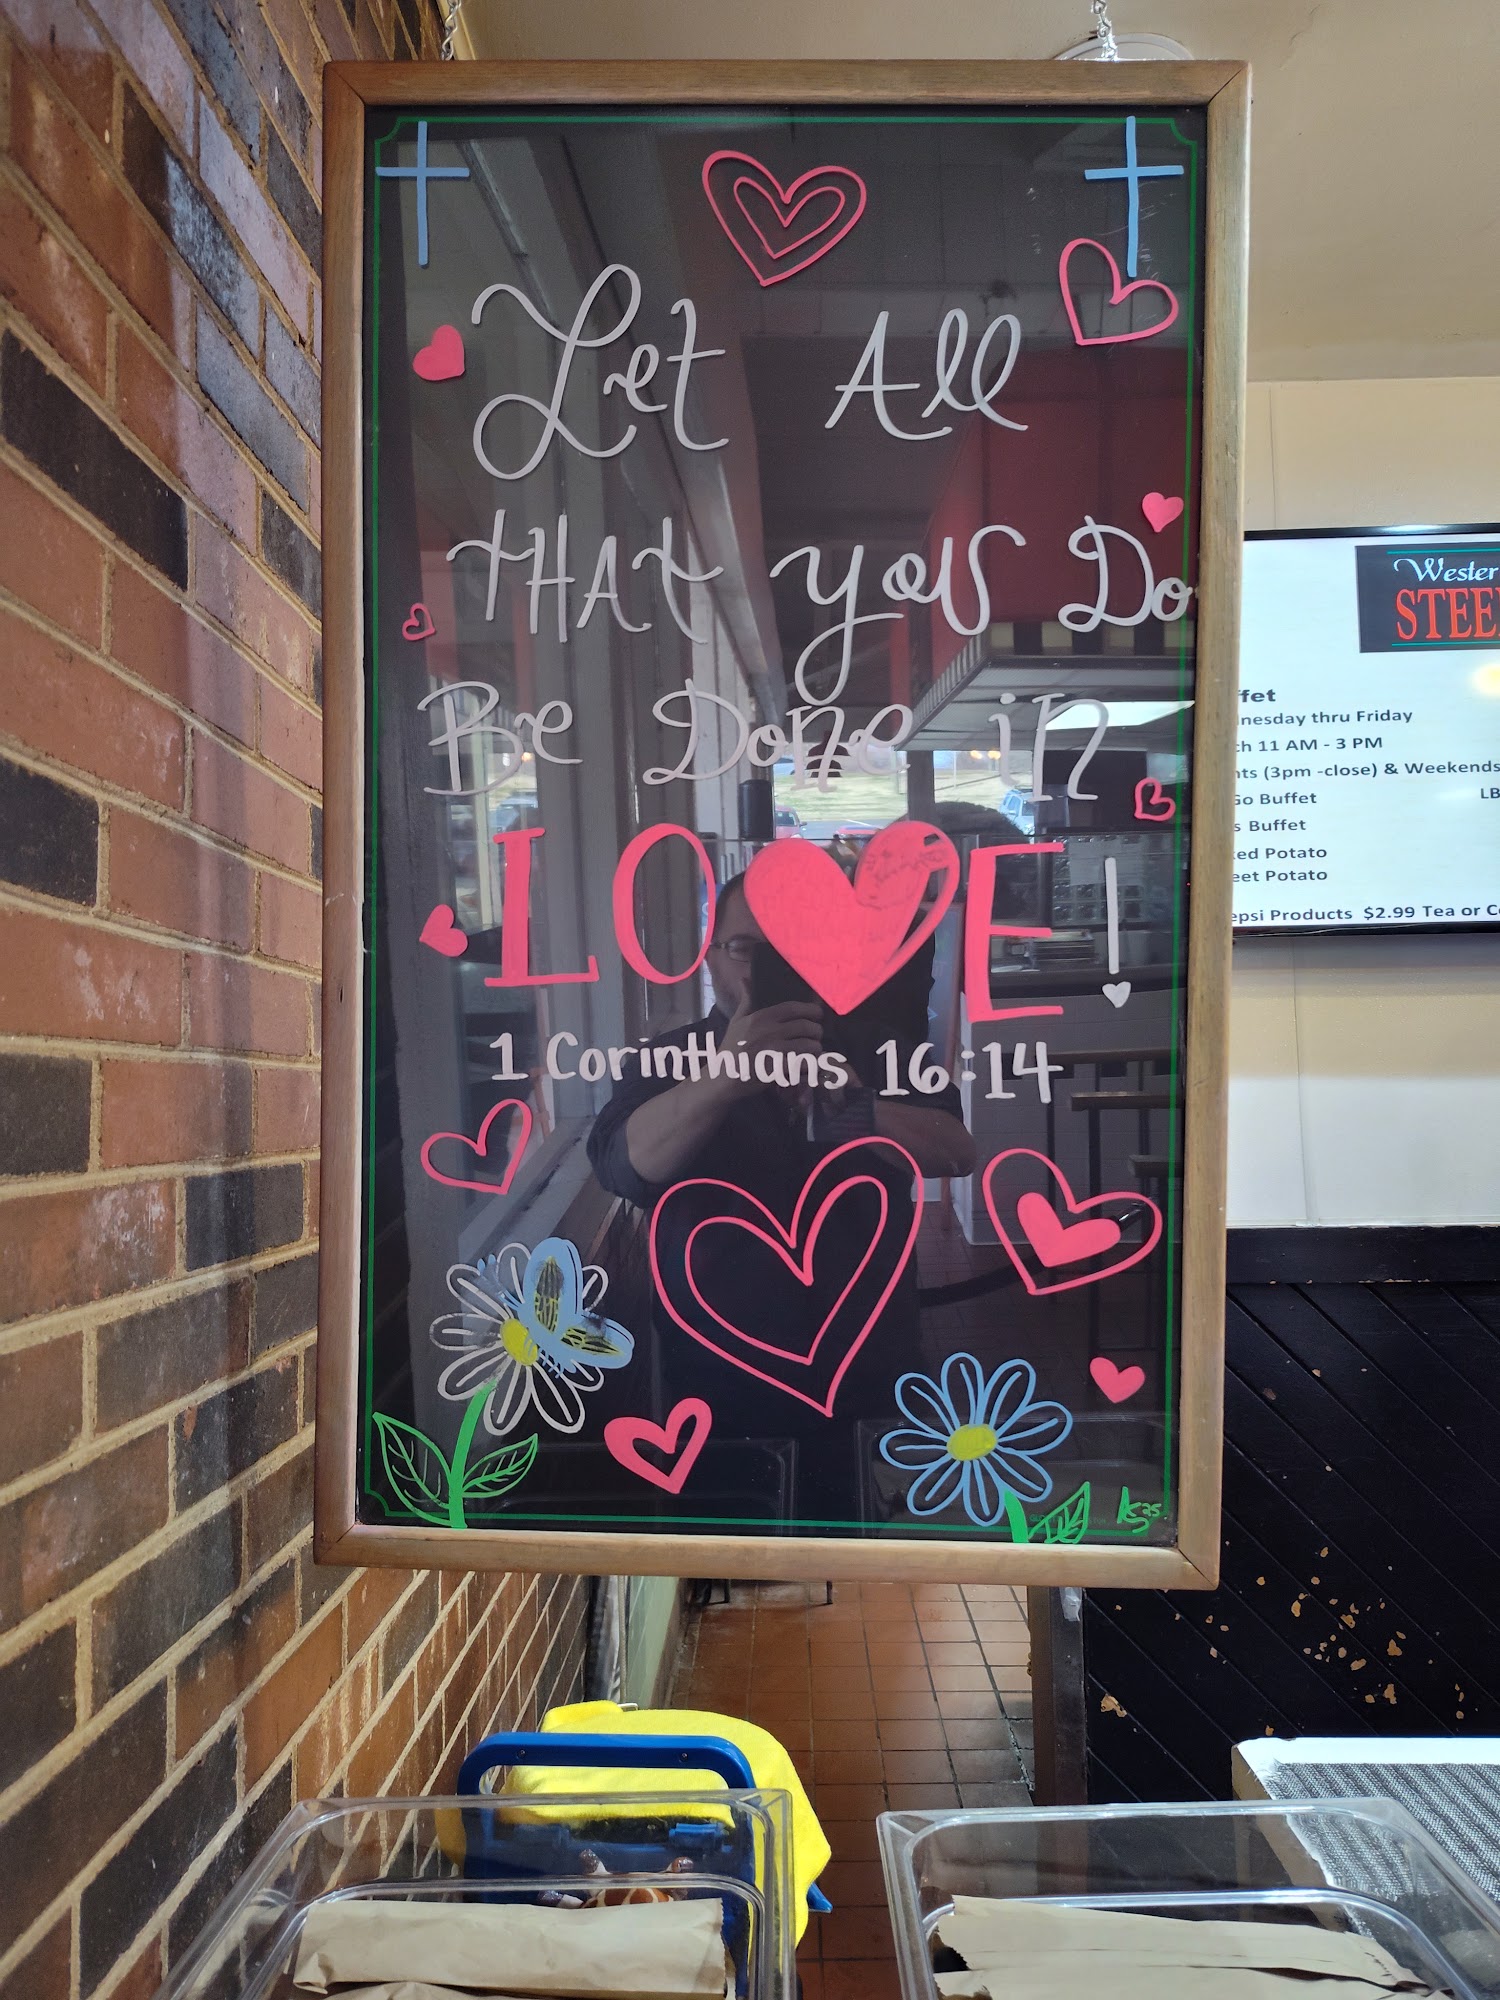 Let All
THAT you Do
Be Done in
LOVE!
1 Corinthians 16:14
KS 25
Wester
STEE
ffet
nesday thru Friday
ch 11 AM - 3 PM
hts (3pm -close) & Weekends
Go Buffet LB
s Buffet
ked Potato
eet Potato
epsi Products $2.99 Tea or Co